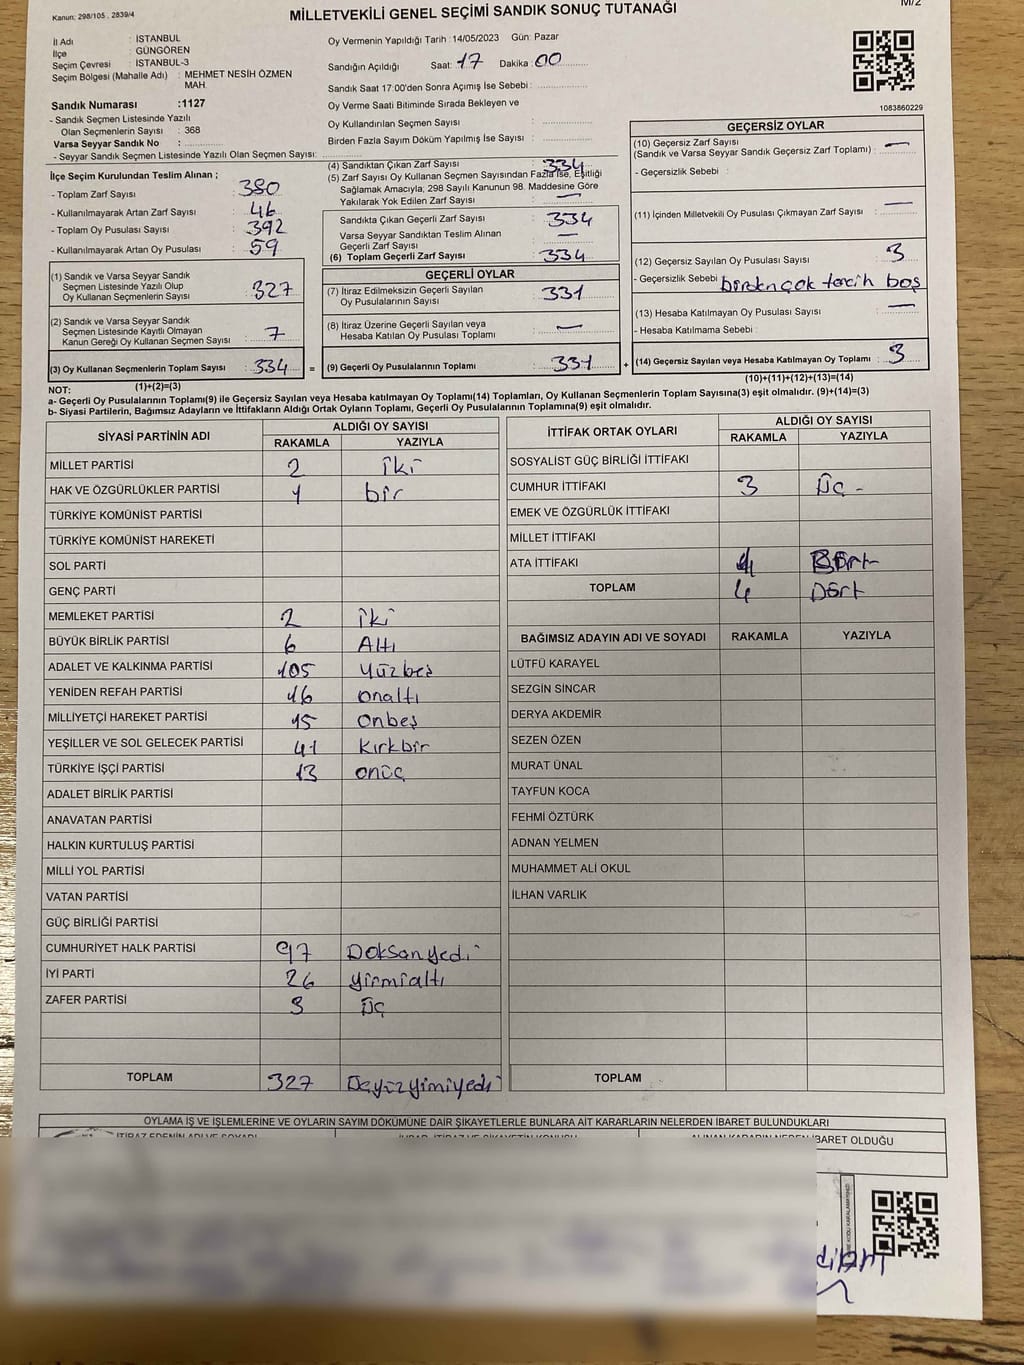 Kanun: 298/105 . 2839/4
M/2
MİLLETVEKİLİ GENEL SEÇİMİ SANDIK SONUÇ TUTANAĞI
İl Adı : İSTANBUL
İlçe : GÜNGÖREN
Seçim Çevresi : İSTANBUL-3
Seçim Bölgesi (Mahalle Adı) : MEHMET NESİH ÖZMEN
MAH.
Sandık Numarası :1127
- Sandık Seçmen Listesinde Yazılı
Olan Seçmenlerin Sayısı : 368
Varsa Seyyar Sandık No :
- Seyyar Sandık Seçmen Listesinde Yazılı Olan Seçmen Sayısı:
Oy Vermenin Yapıldığı Tarih : 14/05/2023 Gün: Pazar
Sandığın Açıldığı Saat: 17 Dakika : 00
Sandık Saat 17:00'den Sonra Açımış İse Sebebi :
Oy Verme Saati Bitiminde Sırada Bekleyen ve
Oy Kullandırılan Seçmen Sayısı :
Birden Fazla Sayım Döküm Yapılmış İse Sayısı :
1083860229
İlçe Seçim Kurulundan Teslim Alınan ;
- Toplam Zarf Sayısı : 380
- Kullanılmayarak Artan Zarf Sayısı : 46
- Toplam Oy Pusulası Sayısı : 392
- Kullanılmayarak Artan Oy Pusulası : 59
(1) Sandık ve Varsa Seyyar Sandık
Seçmen Listesinde Yazılı Olup
Oy Kullanan Seçmenlerin Sayısı : 327
(2) Sandık ve Varsa Seyyar Sandık
Seçmen Listesinde Kayıtlı Olmayan
Kanun Gereği Oy Kullanan Seçmen Sayısı : 7
(3) Oy Kullanan Seçmenlerin Toplam Sayısı : 334 =
(1)+(2)=(3)
(4) Sandıktan Çıkan Zarf Sayısı : 334
(5) Zarf Sayısı Oy Kullanan Seçmen Sayısından Fazla İse, Eşitliği
Sağlamak Amacıyla; 298 Sayılı Kanunun 98. Maddesine Göre
Yakılarak Yok Edilen Zarf Sayısı : —
Sandıkta Çıkan Geçerli Zarf Sayısı : 334
Varsa Seyyar Sandıktan Teslim Alınan
Geçerli Zarf Sayısı : —
(6) Toplam Geçerli Zarf Sayısı : 334
GEÇERLİ OYLAR
(7) İtiraz Edilmeksizin Geçerli Sayılan
Oy Pusulalarının Sayısı : 331
(8) İtiraz Üzerine Geçerli Sayılan veya
Hesaba Katılan Oy Pusulası Toplamı : —
(9) Geçerli Oy Pusulalarının Toplamı : 331 +
GEÇERSİZ OYLAR
(10) Geçersiz Zarf Sayısı
(Sandık ve Varsa Seyyar Sandık Geçersiz Zarf Toplamı) : —
- Geçersizlik Sebebi :
(11) İçinden Milletvekili Oy Pusulası Çıkmayan Zarf Sayısı : —
(12) Geçersiz Sayılan Oy Pusulası Sayısı : 3
- Geçersizlik Sebebi : birden çok tercih boş
(13) Hesaba Katılmayan Oy Pusulası Sayısı : —
- Hesaba Katılmama Sebebi :
(14) Geçersiz Sayılan veya Hesaba Katılmayan Oy Toplamı : 3
(10)+(11)+(12)+(13)=(14)
NOT:
a- Geçerli Oy Pusulalarının Toplamı(9) ile Geçersiz Sayılan veya Hesaba katılmayan Oy Toplamı(14) Toplamları, Oy Kullanan Seçmenlerin Toplam Sayısına(3) eşit olmalıdır. (9)+(14)=(3)
b- Siyasi Partilerin, Bağımsız Adayların ve İttifakların Aldığı Ortak Oyların Toplamı, Geçerli Oy Pusulalarının Toplamına(9) eşit olmalıdır.
SİYASİ PARTİNİN ADI ALDIĞI OY SAYISI
RAKAMLA YAZIYLA
MİLLET PARTİSİ 2 iki
HAK VE ÖZGÜRLÜKLER PARTİSİ 1 bir
TÜRKİYE KOMÜNİST PARTİSİ
TÜRKİYE KOMÜNİST HAREKETİ
SOL PARTİ
GENÇ PARTİ
MEMLEKET PARTİSİ 2 iki
BÜYÜK BİRLİK PARTİSİ 6 Altı
ADALET VE KALKINMA PARTİSİ 105 yüzbeş
YENİDEN REFAH PARTİSİ 16 onaltı
MİLLİYETÇİ HAREKET PARTİSİ 15 onbeş
YEŞİLLER VE SOL GELECEK PARTİSİ 41 Kırkbir
TÜRKİYE İŞÇİ PARTİSİ 13 onüç
ADALET BİRLİK PARTİSİ
ANAVATAN PARTİSİ
HALKIN KURTULUŞ PARTİSİ
MİLLİ YOL PARTİSİ
VATAN PARTİSİ
GÜÇ BİRLİĞİ PARTİSİ
CUMHURİYET HALK PARTİSİ 97 Doksanyedi
İYİ PARTİ 26 yirmialtı
ZAFER PARTİSİ 3 üç
TOPLAM 327 Üçyüzyimiyedi
İTTİFAK ORTAK OYLARI ALDIĞI OY SAYISI
RAKAMLA YAZIYLA
SOSYALİST GÜÇ BİRLİĞİ İTTİFAKI
CUMHUR İTTİFAKI 3 Üç -
EMEK VE ÖZGÜRLÜK İTTİFAKI
MİLLET İTTİFAKI
ATA İTTİFAKI
TOPLAM 4 Dört
BAĞIMSIZ ADAYIN ADI VE SOYADI RAKAMLA YAZIYLA
LÜTFÜ KARAYEL
SEZGİN SİNCAR
DERYA AKDEMİR
SEZEN ÖZEN
MURAT ÜNAL
TAYFUN KOCA
FEHMİ ÖZTÜRK
ADNAN YELMEN
MUHAMMET ALİ OKUL
İLHAN VARLIK
TOPLAM
OYLAMA İŞ VE İŞLEMLERİNE VE OYLARIN SAYIM DÖKÜMÜNE DAİR ŞİKAYETLERLE BUNLARA AİT KARARLARIN NELERDEN İBARET BULUNDUKLARI
İBARET OLDUĞU